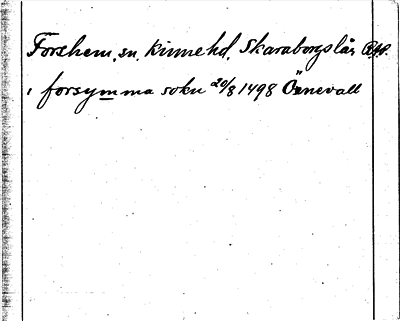 Forshem, sn, Kinnehd, Skaraborgs län
i forsymma sokn 20/8 1498 Örnevall